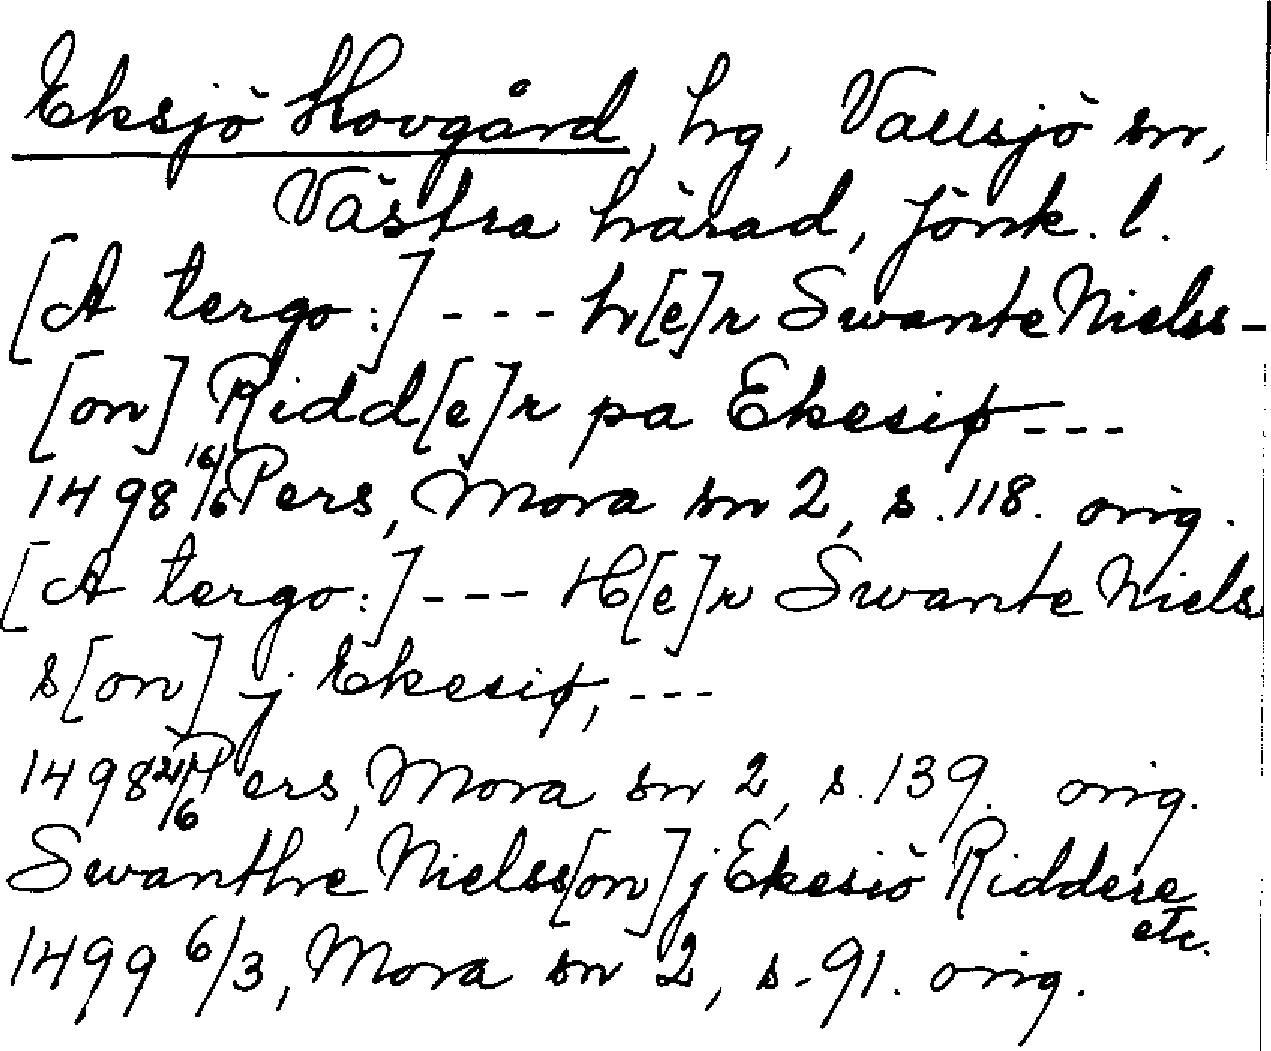 Eksjö Hovgård, hg, Vallsjö sn,
Västra härad, Jönk. l.
[A tergo:] --- h[e]r Swante Nielss-
[on] Ridd[e]r pa Ekesiø ---
1498 16/6 Pers, Mora sn 2, s. 118. orig.
[A tergo:] --- H[e]r Swante Niels
s[on] j Ekesiø, ---
1498 /6 Pers, Mora sn 2, s. 139. orig.
Swanthe Nielss[on] j Ekesiö Riddere
etc.
1499 6/3, Mora sn 2, s. 91. orig.